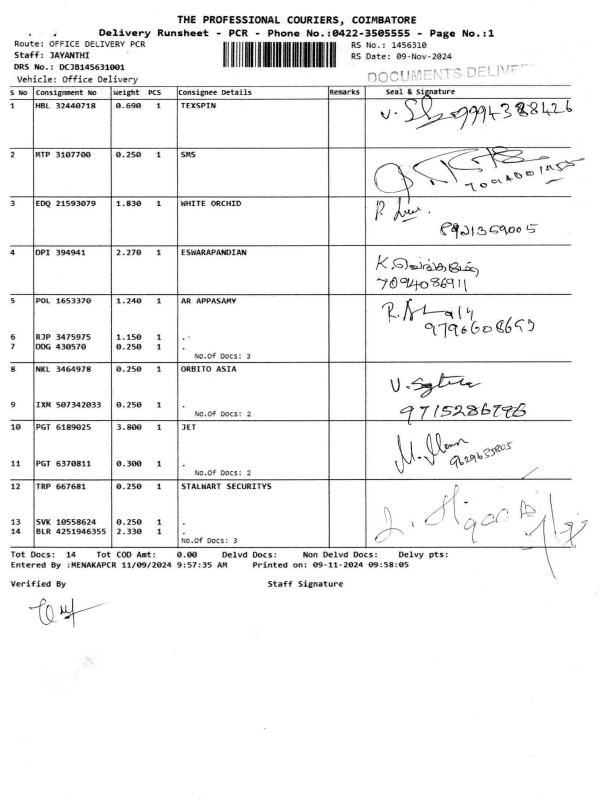 THE PROFESSIONAL COURIERS, COIMBATORE
Delivery Runsheet - PCR - Phone No.:0422-3505555 - Page No.:1
Route: OFFICE DELIVERY PCR RS No.: 1456310
Staff: JAYANTHI RS Date: 09-Nov-2024
DRS No.: DCJB145631001
Vehicle: Office Delivery DOCUMENTS DELIVE
S No Consignment No Weight PCS Consignee Details Remarks Seal & Signature
1 HBL 32440718 0.690 1 TEXSPIN 9994388426
2 MTP 3107700 0.250 1 SMS
3 EDQ 21593079 1.830 1 WHITE ORCHID
8921359005
4 DPI 394941 2.270 1 ESWARAPANDIAN
7094086911
5 POL 1653370 1.240 1 AR APPASAMY
6 RJP 3475975 1.150 1 .
7 DDG 430570 0.250 1 .
No.Of Docs: 3
8 NKL 3464978 0.250 1 ORBITO ASIA
9 IXM 507342033 0.250 1 . 9715286796
No.Of Docs: 2
10 PGT 6189025 3.800 1 JET
11 PGT 6370811 0.300 1 .
No.Of Docs: 2
12 TRP 667681 0.250 1 STALWART SECURITYS
13 SVK 10558624 0.250 1 .
14 BLR 4251946355 2.330 1 .
No.Of Docs: 3
Tot Docs: 14 Tot COD Amt: 0.00 Delvd Docs: Non Delvd Docs: Delvy pts:
Entered By :MENAKAPCR 11/09/2024 9:57:35 AM Printed on: 09-11-2024 09:58:05
Verified By Staff Signature